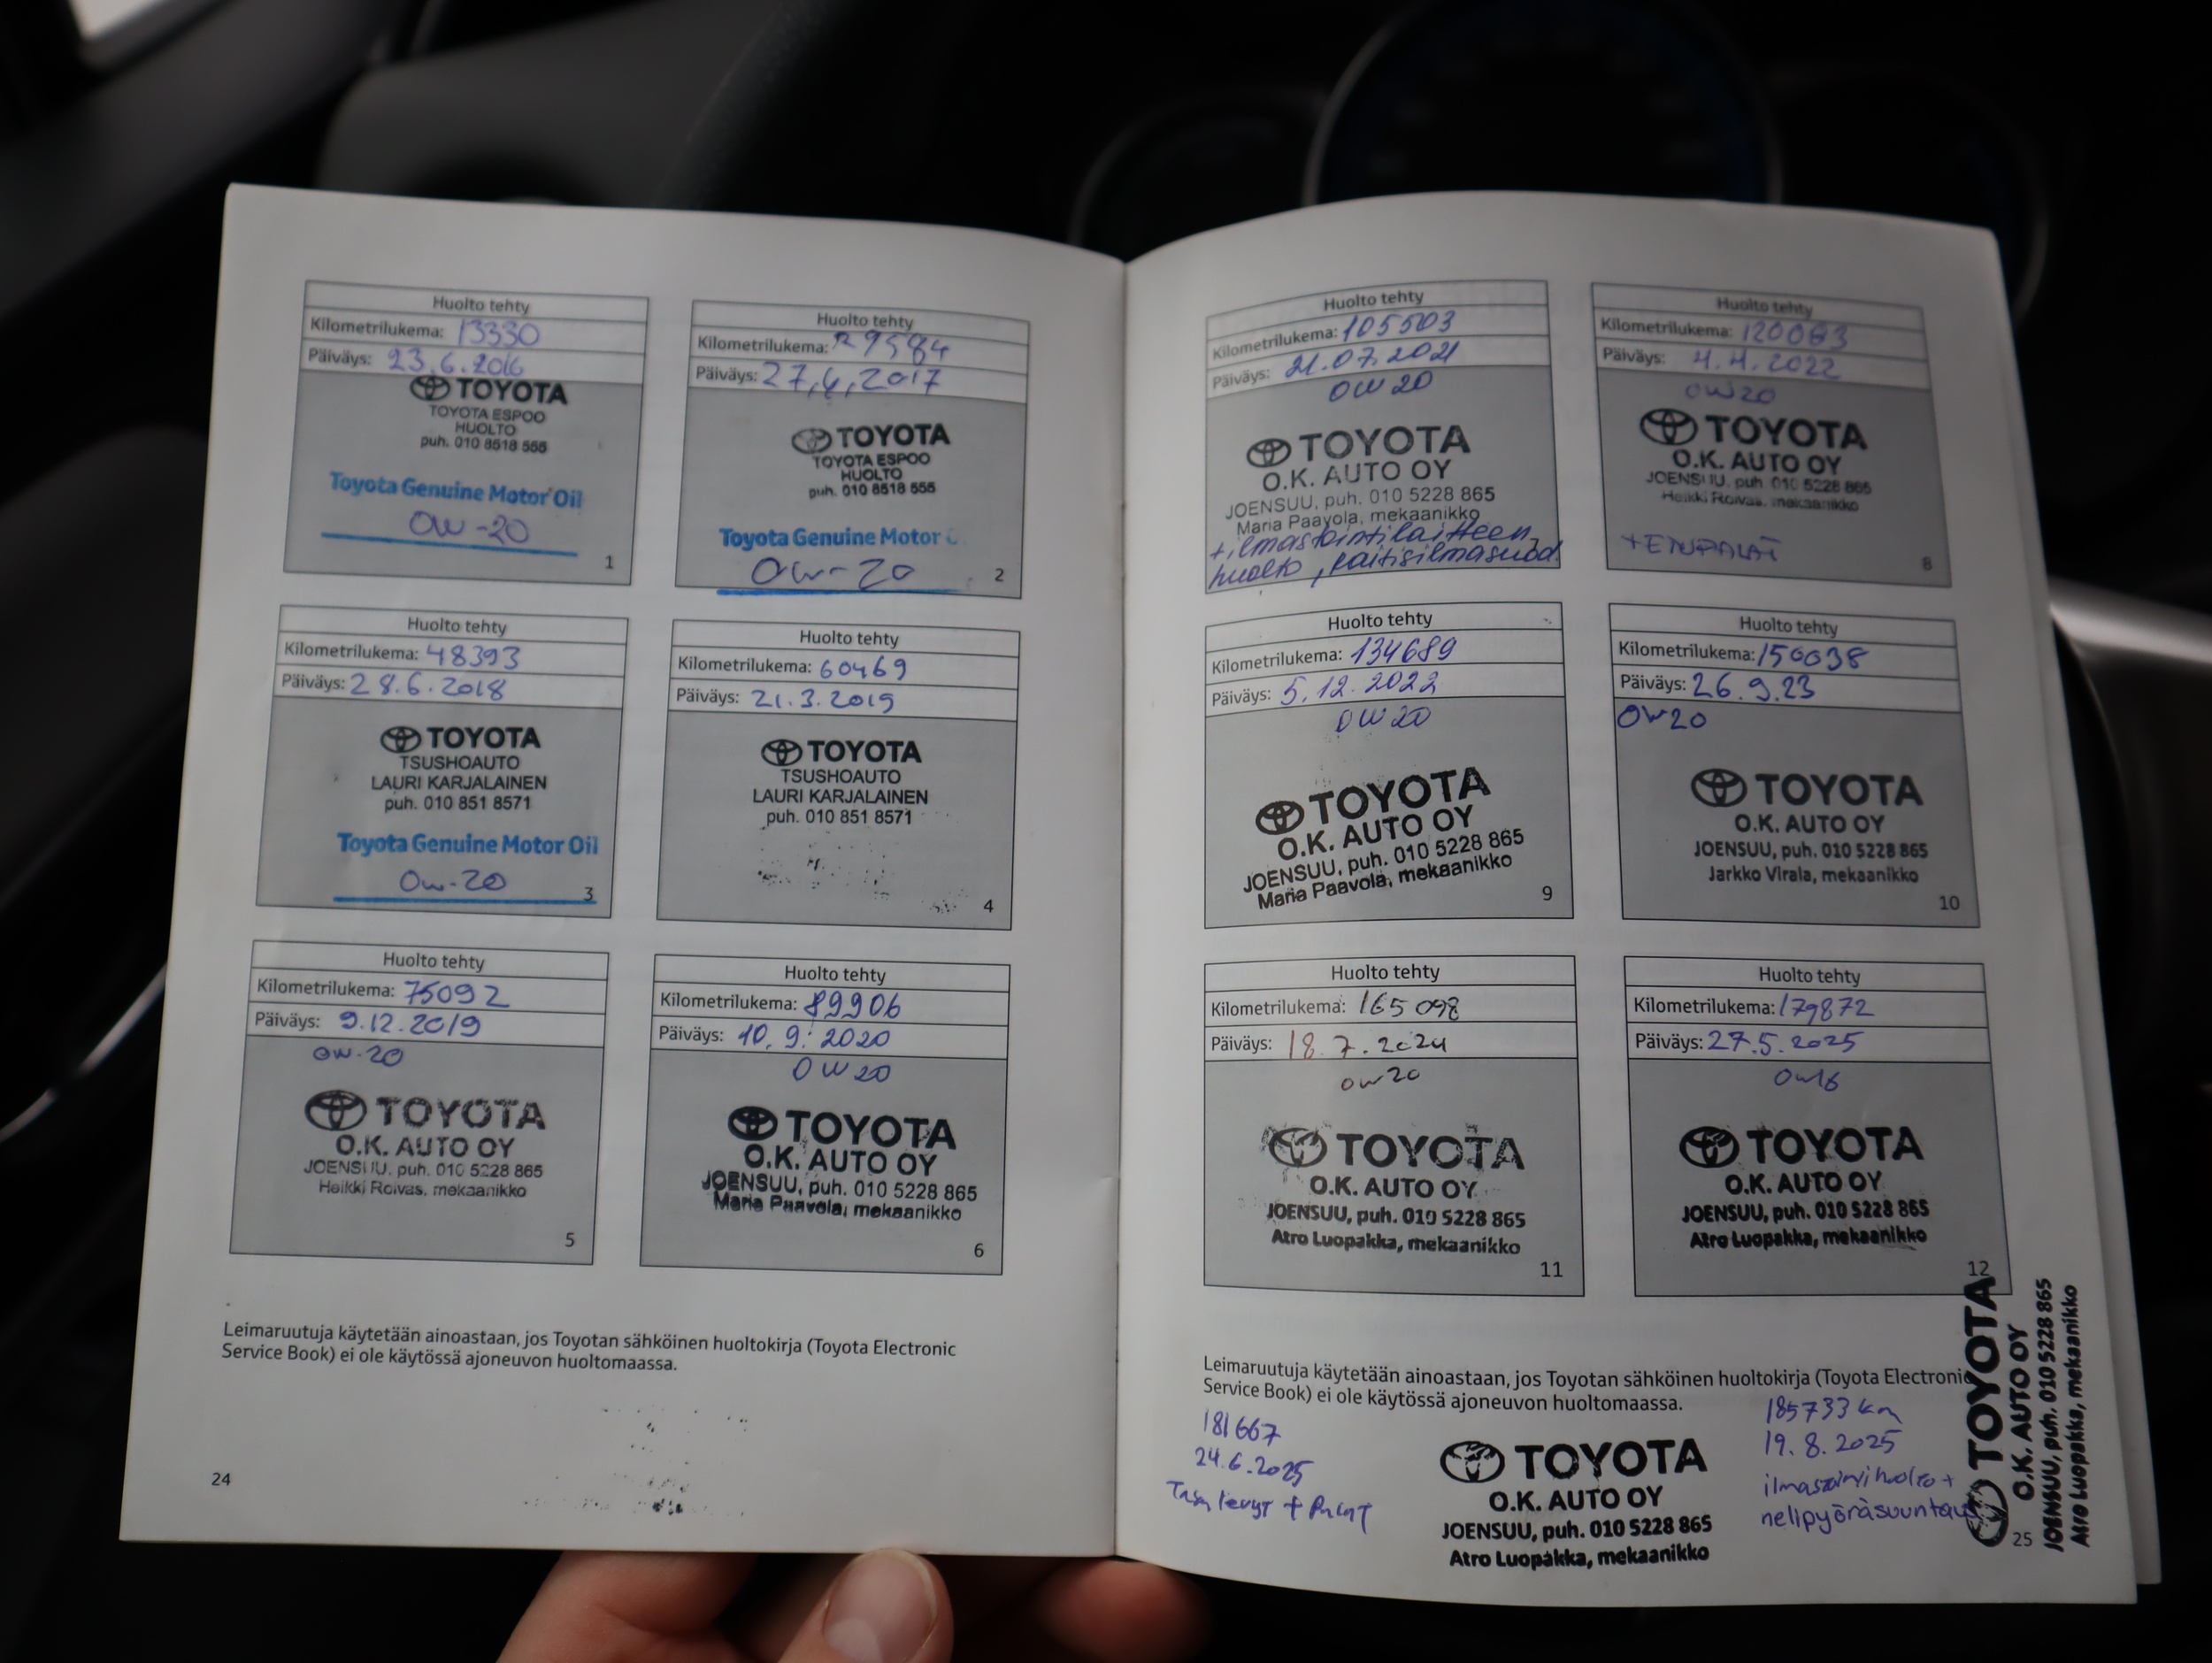 Huolto tehty
Kilometrilukema: 13330
Päiväys: 23.6.2016
TOYOTA
TOYOTA ESPOO
HUOLTO
puh. 010 8518 555
Toyota Genuine Motor Oil
0W-20
1
Huolto tehty
Kilometrilukema: 29584
Päiväys: 27,6,2017
TOYOTA
TOYOTA ESPOO
HUOLTO
puh. 010 8518 555
Toyota Genuine Motor O
0W-20
2
Huolto tehty
Kilometrilukema: 48393
Päiväys: 28.6.2018
TOYOTA
TSUSHOAUTO
LAURI KARJALAINEN
puh. 010 851 8571
Toyota Genuine Motor Oil
0W-20
3
Huolto tehty
Kilometrilukema: 60469
Päiväys: 21.3.2019
TOYOTA
TSUSHOAUTO
LAURI KARJALAINEN
puh. 010 851 8571
4
Huolto tehty
Kilometrilukema: 75092
Päiväys: 9.12.2019
0W-20
TOYOTA
O.K. AUTO OY
JOENSUU, puh. 010 5228 865
Heikki Roivas, mekaanikko
5
Huolto tehty
Kilometrilukema: 89906
Päiväys: 10.9.2020
0W20
TOYOTA
O.K. AUTO OY
JOENSUU, puh. 010 5228 865
Maria Paavola, mekaanikko
6
Leimaruutuja käytetään ainoastaan, jos Toyotan sähköinen huoltokirja (Toyota Electronic
Service Book) ei ole käytössä ajoneuvon huoltomaassa.
24
Huolto tehty
Kilometrilukema: 105503
Päiväys: 21.07.2021
0W20
TOYOTA
O.K. AUTO OY
JOENSUU, puh. 010 5228 865
Maria Paavola, mekaanikko
+ilmastointilaitteen
huolto, raitisilmasuod.
7
Huolto tehty
Kilometrilukema: 120083
Päiväys: 4.4.2022
0W20
TOYOTA
O.K. AUTO OY
JOENSUU, puh. 010 5228 865
Heikki Roivas, mekaanikko
+ETUPALAT
8
Huolto tehty
Kilometrilukema: 134689
Päiväys: 5.12.2022
0W20
TOYOTA
O.K. AUTO OY
JOENSUU, puh. 010 5228 865
Maria Paavola, mekaanikko
9
Huolto tehty
Kilometrilukema: 150038
Päiväys: 26.9.23
0W20
TOYOTA
O.K. AUTO OY
JOENSUU, puh. 010 5228 865
Jarkko Virala, mekaanikko
10
Huolto tehty
Kilometrilukema: 165098
Päiväys: 18.7.2024
0W20
TOYOTA
O.K. AUTO OY
JOENSUU, puh. 010 5228 865
Atro Luopakka, mekaanikko
11
Huolto tehty
Kilometrilukema: 179872
Päiväys: 27.5.2025
0W16
TOYOTA
O.K. AUTO OY
JOENSUU, puh. 010 5228 865
Atro Luopakka, mekaanikko
12
Leimaruutuja käytetään ainoastaan, jos Toyotan sähköinen huoltokirja (Toyota Electronic
Service Book) ei ole käytössä ajoneuvon huoltomaassa.
181667
24.6.2025
levyt + Palat
TOYOTA
O.K. AUTO OY
JOENSUU, puh. 010 5228 865
Atro Luopakka, mekaanikko
185733 km
19.8.2025
huolto +
nelipyöräsuuntaus
TOYOTA
O.K. AUTO OY
JOENSUU, puh. 010 5228 865
Atro Luopakka, mekaanikko
25